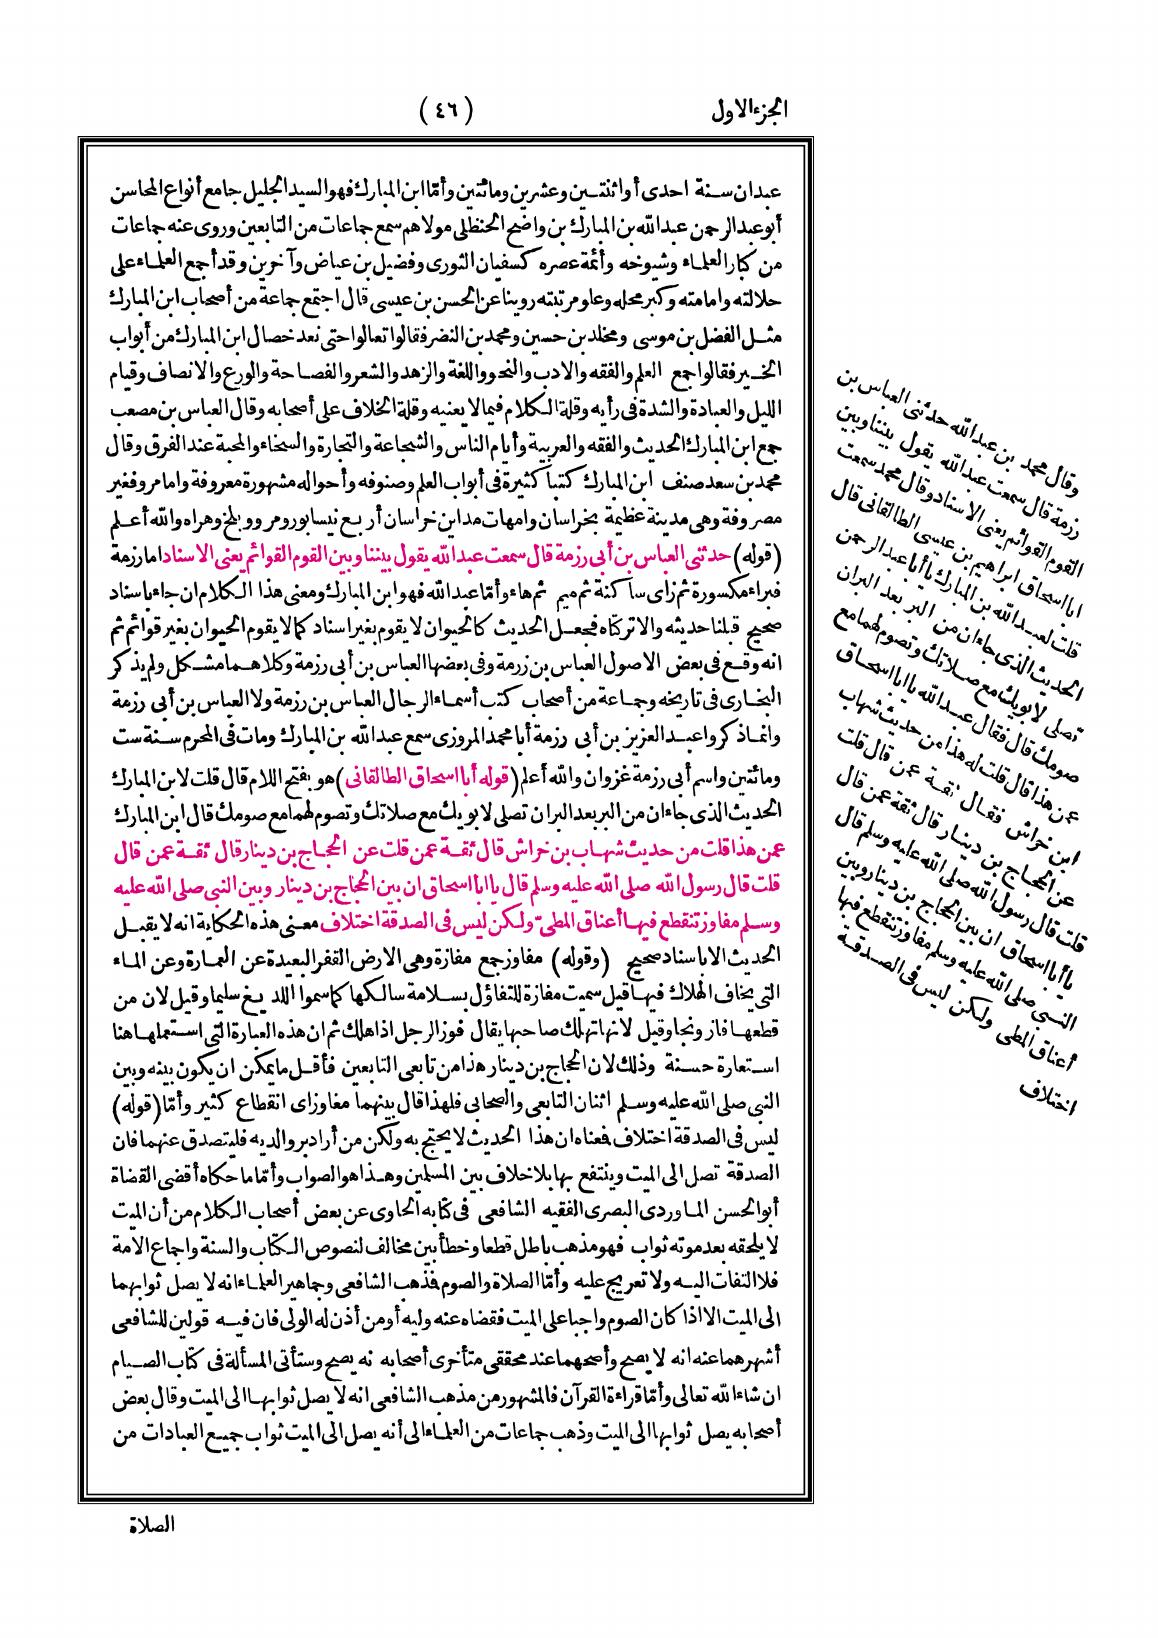 الجزء الاول
(٤٦)
عبدان سنة احدى أواثنتين وعشرين ومائتين وأمّا ابن المبارك فهو السيد الجليل جامع أنواع المحاسن
أبو عبد الرحمن عبد الله بن المبارك بن واضح الحنظلى مولاهم سمع جماعات من التابعين وروى عنه جماعات
من كبار العلماء وشيوخه وأئمة عصره كسفيان الثورى وفضيل بن عياض وآخرين وقد أجمع العلماء على
جلالته وامامته وكبر محله وعلو مرتبته روينا عن الحسن بن عيسى قال اجتمع جماعة من أصحاب ابن المبارك
مثل الفضل بن موسى ومخلد بن حسين ومحمد بن النضر فقالوا تعالوا حتى نعد خصال ابن المبارك من أبواب
الخير فقالوا جمع العلم والفقه والادب والنحو واللغة والزهد والشعر والفصاحة والورع والانصاف وقيام
الليل والعبادة والشدة فى رأيه وقلة الكلام فيما لا يعنيه وقلة الخلاف على أصحابه وقال العباس بن مصعب
جمع ابن المبارك الحديث والفقه والعربية وأيام الناس والشجاعة والتجارة والسخاء والمحبة عند الفرق وقال
محمد بن سعد صنف ابن المبارك كتبا كثيرة فى أبواب العلم وصنوفه وأحواله مشهورة معروفة وامامر وفغير
مصروفة وهى مدينة عظيمة بخراسان وامهات مداين خراسان أربع نيسابور ومرو وبلخ وهراه والله أعلم
(قوله) حدثنى العباس بن أبى رزمة قال سمعت عبد الله يقول بيننا وبين القوم القوائم يعنى الاسناد اما رزمة
فبراء مكسورة ثم زاى ساكنة ثم ميم ثم هاء وأمّا عبد الله فهو ابن المبارك ومعنى هذا الكلام ان جاء باسناد
صحيح قبلنا حديثه والا تركناه فجعل الحديث كالحيوان لا يقوم بغير اسناد كما لا يقوم الحيوان بغير قوائم ثم
انه وقع فى بعض الاصول العباس بن رزمة وفى بعضها العباس بن أبى رزمة وكلاهما مشكل ولم يذكر
البخارى فى تاريخه وجماعة من أصحاب كتب أسماء الرجال العباس بن رزمة ولا العباس بن أبى رزمة
وانما ذكروا عبد العزيز بن أبى رزمة أبا محمد المروزى سمع عبد الله بن المبارك ومات فى المحرم سنة ست
ومائتين واسم أبى رزمة غزوان والله أعلم (قوله أبا اسحاق الطالقانى) هو بفتح اللام قال قلت لابن المبارك
الحديث الذى جاء ان من البر بعد البران تصلى لابويك مع صلاتك وتصوم لهما مع صومك قال ابن المبارك
عمن هذا قلت من حديث شهاب بن خراش قال ثقة عمن قلت عن الحجاج بن دينار قال ثقة عمن قال
قلت قال رسول الله صلى الله عليه وسلم قال يا ابا اسحاق ان بين الحجاج بن دينار وبين النبى صلى الله عليه
وسلم مفاوز تنقطع فيها أعناق المطىّ ولكن ليس فى الصدقة اختلاف معنى هذه الحكاية انه لا يقبل
الحديث الا باسناد صحيح (وقوله) مفاوز جمع مفازة وهى الارض القفر البعيدة عن العمارة وعن الماء
التى يخاف الهلاك فيها قيل سميت مفازة للتفاؤل بسلامة سالكها كما سموا اللديغ سليما وقيل لان من
قطعها فاز ونجا وقيل لانها تهلك صاحبها يقال فوز الرجل اذا هلك ثم ان هذه العبارة التى استعملها هنا
استعارة حسنة وذلك لان الحجاج بن دينار هذا من تابعى التابعين فأقل ما يمكن ان يكون بينه وبين
النبى صلى الله عليه وسلم اثنان التابعى والصحابى فلهذا قال بينهما مفاوز اى انقطاع كثير وأمّا (قوله)
ليس فى الصدقة اختلاف فعناه ان هذا الحديث لا يحتج به ولكن من أراد بر والديه فليتصدق عنهما فان
الصدقة تصل الى الميت وينتفع بها بلا خلاف بين المسلمين وهذا هو الصواب وأمّا ما حكاه أقضى القضاة
أبو الحسن الماوردى البصرى الفقيه الشافعى فى كتابه الحاوى عن بعض أصحاب الكلام من أن الميت
لا يلحقه بعد موته ثواب فهو مذهب باطل قطعا وخطأ بين مخالف لنصوص الكتاب والسنة واجماع الامة
فلا التفات اليه ولا تعريج عليه وأمّا الصلاة والصوم فذهب الشافعى وجماهير العلماء انه لا يصل ثوابهما
الى الميت الا اذا كان الصوم واجبا على الميت فقضاه عنه وليه أو من أذن له الولى فان فيه قولين للشافعى
أشهرهما عنه انه لا يصح وأصحهما عند محققى متأخرى أصحابه نه يصح وستأتى المسألة فى كتاب الصيام
ان شاء الله تعالى وأمّا قراءة القرآن فالمشهور من مذهب الشافعى انه لا يصل ثوابها الى الميت وقال بعض
أصحابه يصل ثوابها الى الميت وذهب جماعات من العلماء الى أنه يصل الى الميت ثواب جميع العبادات من
الصلاة
وقال محمد بن عبد الله حدثنى العباس بن
رزمة قال سمعت عبد الله يقول بيننا وبين
القوم القوائم يعنى الاسناد وقال محمد سمعت
ابا اسحاق ابراهيم بن عيسى الطالقانى قال
قلت لعبد الله بن المبارك يا أبا عبد الرحمن
الحديث الذى جاء ان من البر بعد البران
تصلى لابويك مع صلاتك وتصوم لهما مع
صومك قال فقال عبد الله يا ابا اسحاق
عن هذا قال قلت له هذا من حديث شهاب
ابن خراش فقال ثقة عمن قال قلت
عن الحجاج بن دينار قال ثقة عمن قال
قلت قال رسول الله صلى الله عليه وسلم قال
يا أبا اسحاق ان بين الحجاج بن دينار وبين
النبى صلى الله عليه وسلم مفاوز تنقطع فيها
أعناق المطى ولكن ليس فى الصدقة
اختلاف